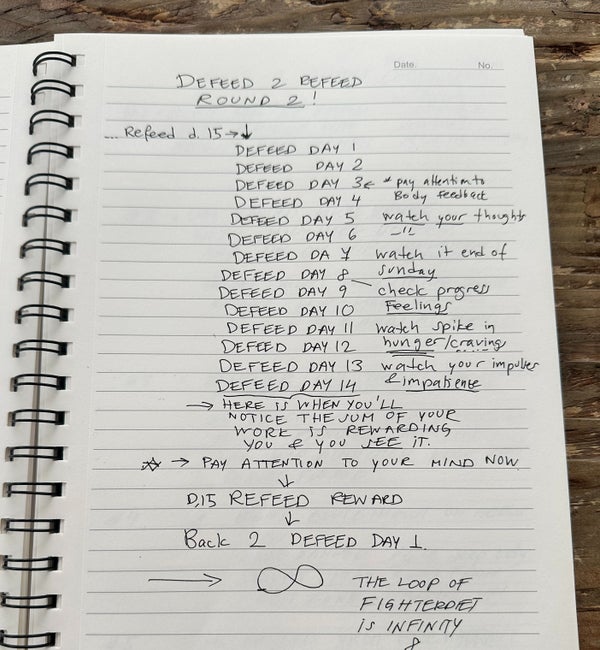 Date.    No.
DEFEED 2 REFEED
ROUND 2!
... Refeed d. 15 → ↓
DEFEED DAY 1
DEFEED DAY 2
DEFEED DAY 3 ← * pay attention to
DEFEED DAY 4 Body feedback
DEFEED DAY 5 watch your thoughts
DEFEED DAY 6 —||—
DEFEED DA Y 7 watch it end of
DEFEED DAY 8 sunday
DEFEED DAY 9 check progress
DEFEED DAY 10 Feelings
DEFEED DAY 11 watch spike in
DEFEED DAY 12 hunger/craving
DEFEED DAY 13 watch your impulses
DEFEED DAY 14 & impatiente
→ HERE IS WHEN YOU'LL
NOTICE THE SUM OF YOUR
WORK IS REWARDING
YOU & YOU SEE IT.
☆ → PAY ATTENTION TO YOUR MIND NOW
↓
D.15 REFEED REWARD
↓
Back 2 DEFEED DAY 1.
→ ∞ THE LOOP OF
FIGHTERDIET
is INFINITY